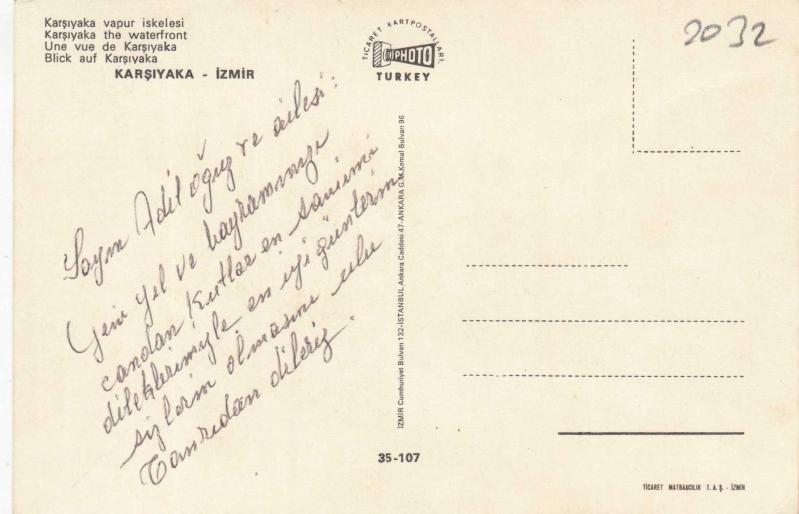 Karşıyaka vapur iskelesi
Karşıyaka the waterfront
Une vue de Karşıyaka
Blick auf Karşıyaka
KARŞIYAKA - İZMİR
TİCARET KARTPOSTALLARI
PHOTO
TURKEY
2032
Sayın Adil oğuz ve ailesi:
Yeni yıl ve bayramınızı
candan kutlar en samimi
dileklerimizle en iyi günlerin
sizlerin olmasını ulu
Tanrıdan dileriz.
İZMİR Cumhuriyet Bulvarı 132-İSTANBUL Ankara Caddesi 47-ANKARA G.M.Kemal Bulvarı 96
35-107
TİCARET MATBAACILIK T. A. Ş. - İZMİR